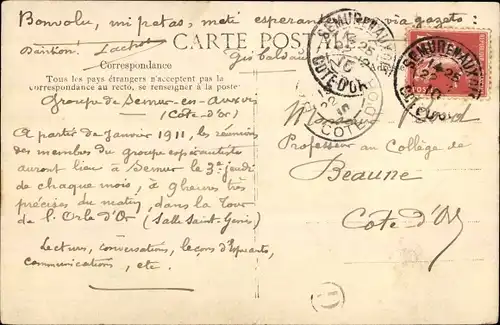 Bonvolu, mi petas, meti esperanton en via gazeto :
CARTE POSTALE
Ĝis balda
Correspondance
Tous les pays étrangers n'acceptent pas la
correspondance au recto, se renseigner à la poste
Groupe de Semur-en-Auxois
(Côte-d'or)
A partir de Janvier 1911, les réunions
des membres du groupe espérantiste
auront lieu à Semur le 3e jeudi
de chaque mois, à 9 heures très
précises du matin, dans la Tour
de l'Orle d'Or (Salle Saint-Genis)
Lectures, conversations, leçons d'Esperanto,
communications, etc.
SEMUR EN AUXOIS
14-25
22
10
COTE D'OR
SEMUR EN AUXOIS
14-25
22
10
COTE D'OR
Monsieur
Professeur au Collège de
Beaune
Côte d'Or